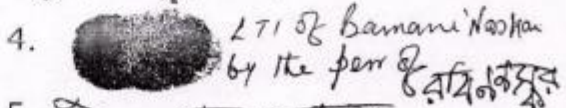 4. LTI of Bamani Naskar
by the pen of রবিন নস্কর